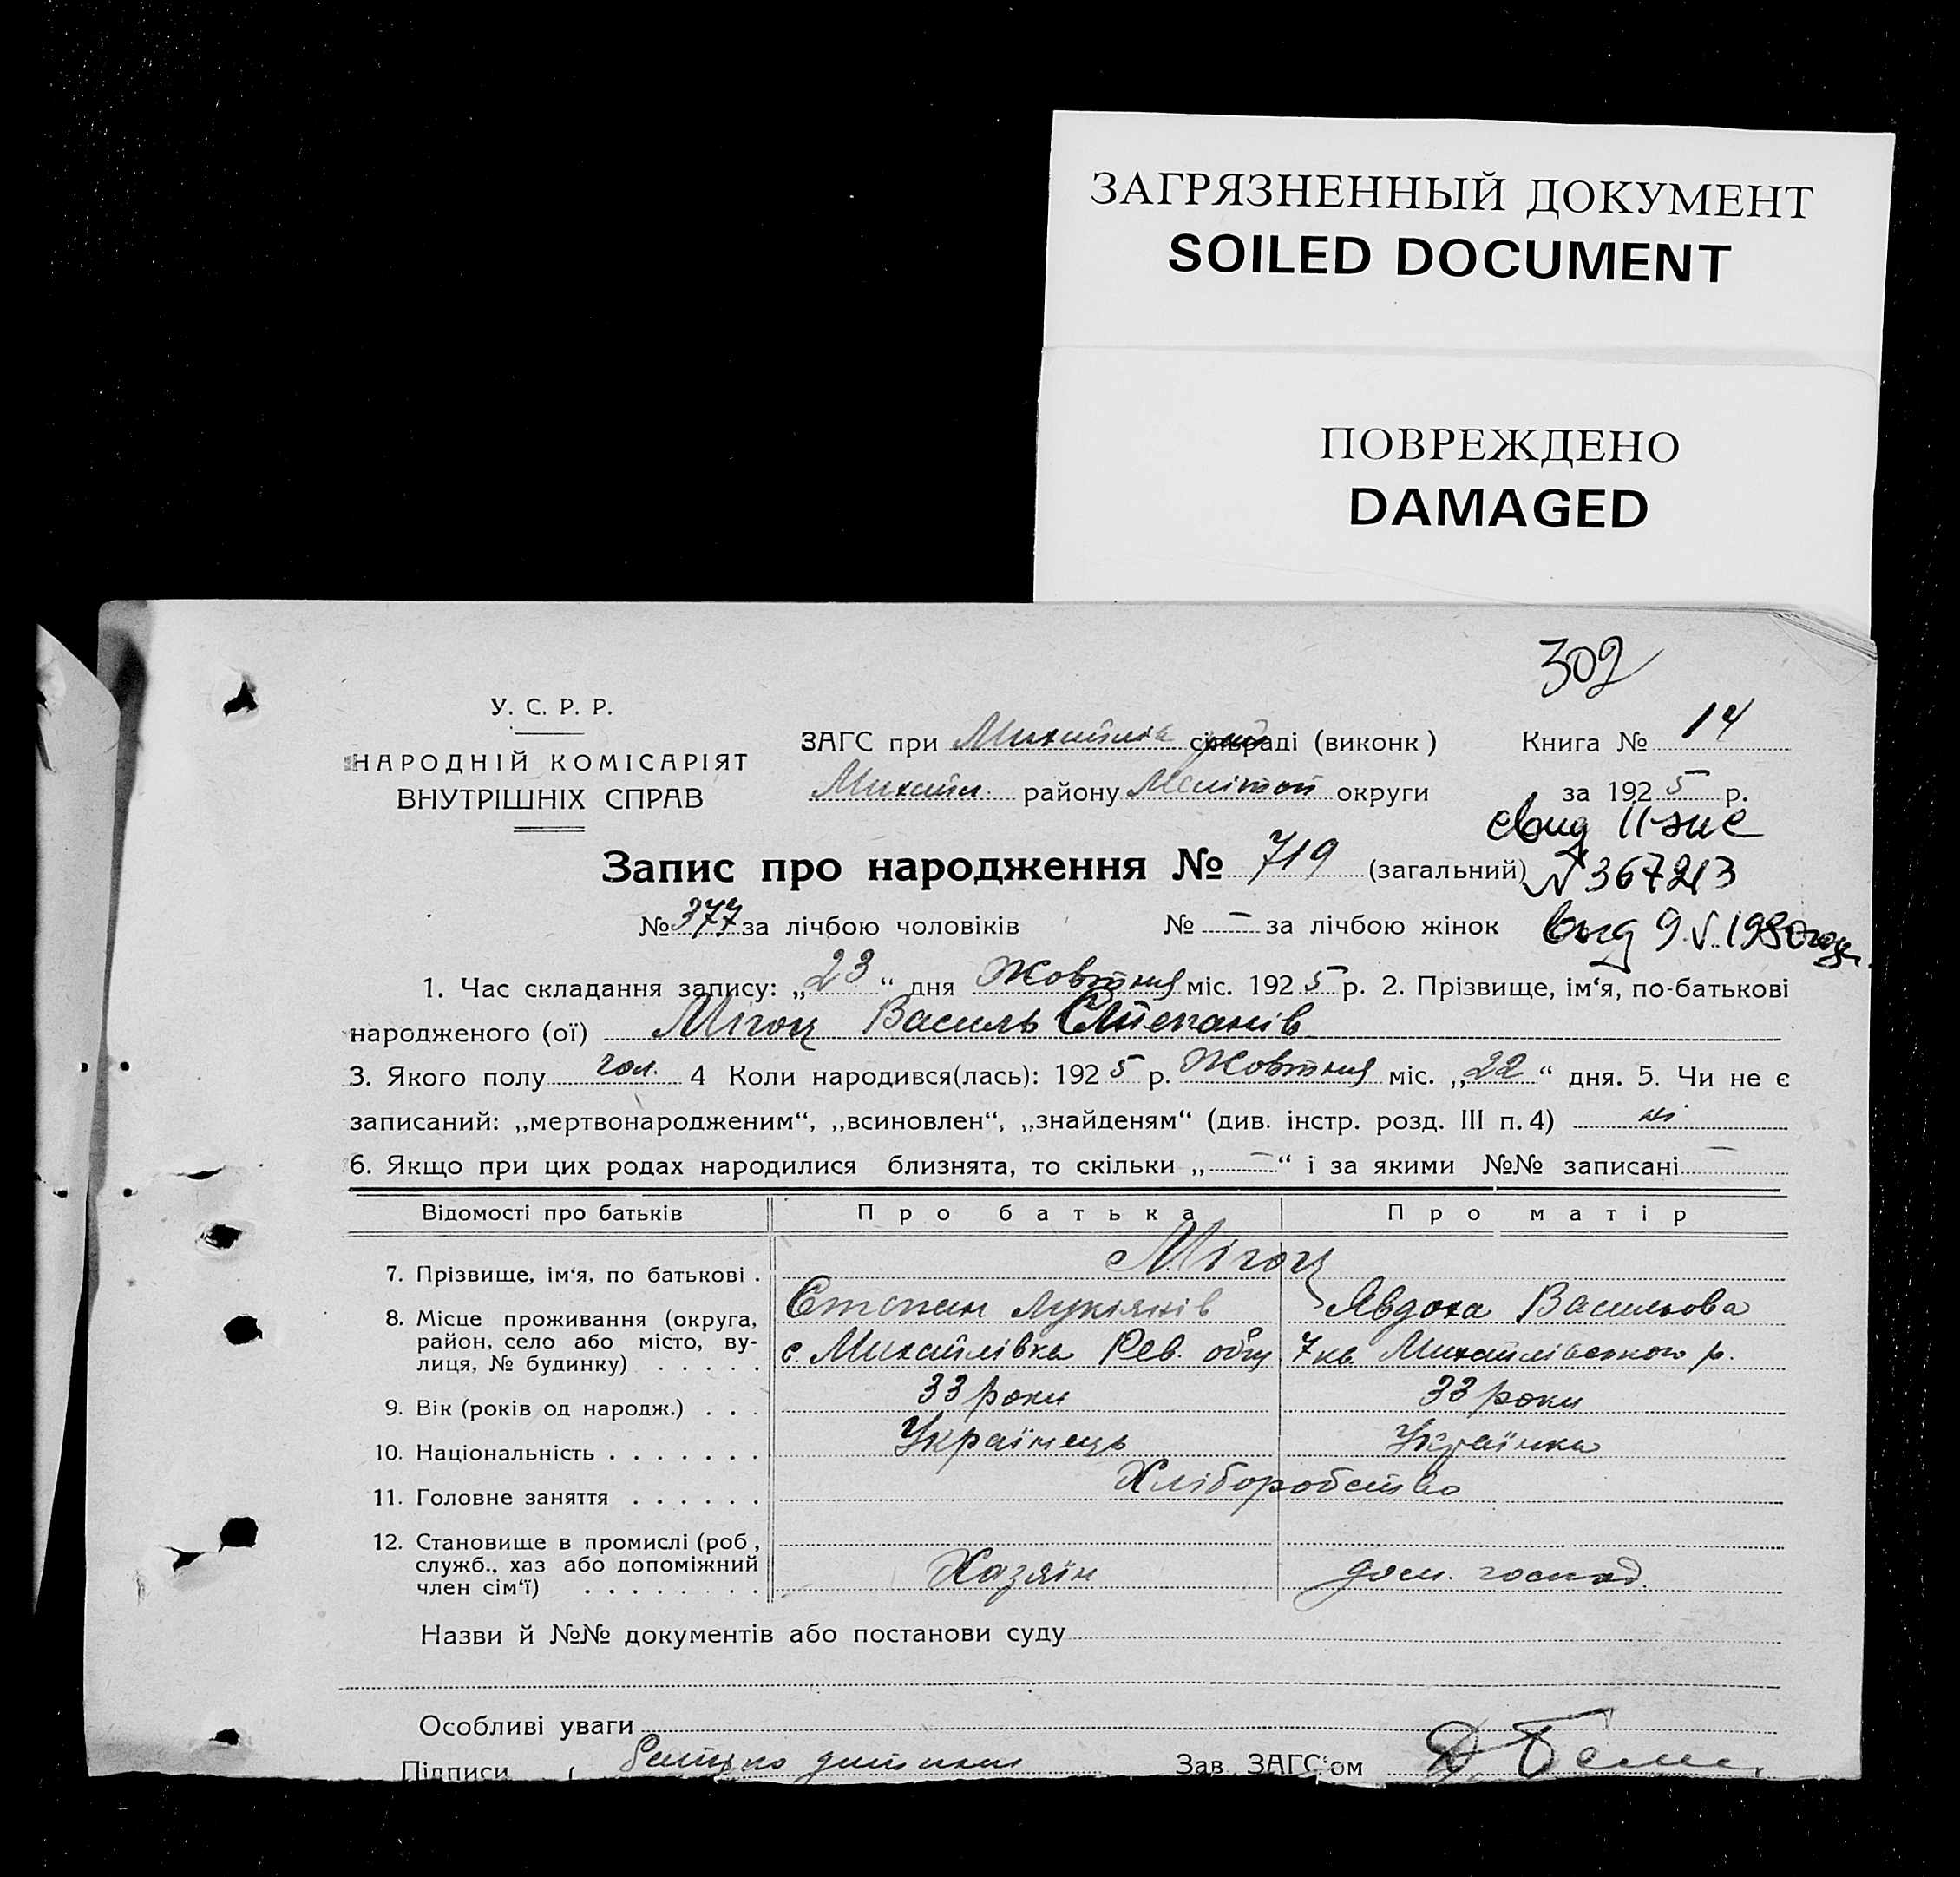 ЗАГРЯЗНЕННЫЙ ДОКУМЕНТ
SOILED DOCUMENT
ПОВРЕЖДЕНО
DAMAGED
302
У. С. Р. Р.
НАРОДНІЙ КОМІСАРІЯТ
ВНУТРІШНІХ СПРАВ
ЗАГС при Михайлів раді (виконк)
Михайл. району Мелітоп округи
Книга № 14
за 1925 р.
Запис про народження № 719 (загальний)
№ 367213
№ 377 за лічбою чоловіків № — за лічбою жінок
9.V.1980
1. Час складання запису: „23“ дня Жовтня міс. 1925 р. 2. Прізвище, ім‘я, по-батькові
народженого (ої) Мігоц Василь Степанів
3. Якого полу чол. 4 Коли народився(лась): 1925 р. Жовтня міс. „22“ дня. 5. Чи не є
записаний: „мертвонародженим“, „всиновлен“, „знайденям“ (див. інстр. розд. III п. 4) ні
6. Якщо при цих родах народилися близнята, то скільки „—“ і за якими №№ записані —
Відомості про батьків Про батька Про матір
7. Прізвище, ім‘я, по батькові . Мігоц
Степан Лукіянів Явдоха Васильова
8. Місце проживання (округа,
район, село або місто, ву-
лиця, № будинку) . . . . . с. Михайлівка Рев. общ 7 кв. Михайлівського р.
9. Вік (років од народж.) . . . 33 роки 33 роки
10. Національність . . . . . . . Українець Українка
11. Головне заняття . . . . . . Хліборобство
12. Становище в промислі (роб,
служб., хаз або допоміжний
член сім‘ї) . . . . . . . . Хазяїн дом. господ.
Назви й №№ документів або постанови суду
Особливі уваги
Підписи Зав ЗАГС‘ом